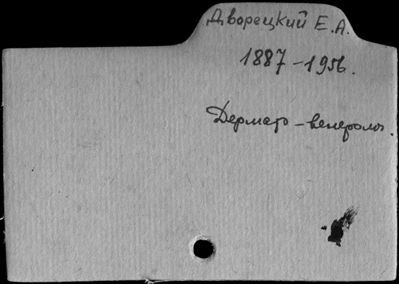 Дворецкий Е.А.
1887-1956.
Дермато-венеролог.